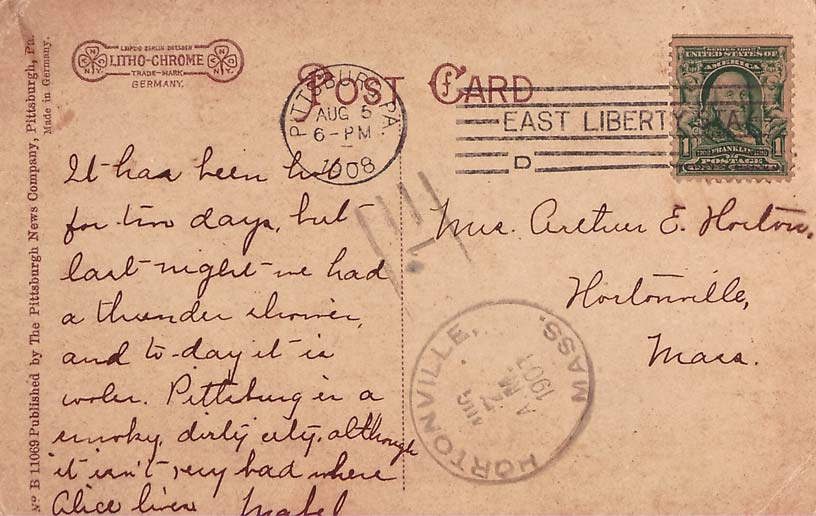 LEIPZIG BERLIN DRESDEN
LITHO-CHROME
TRADE-MARK
GERMANY.
POST CARD
PITTSBURG, PA.
AUG 5
6-PM
1908
EAST LIBERTY STA
D
SERIES 1902
UNITED STATES OF
AMERICA
FRANKLIN
1 POSTAGE 1
It has been hot
for two days, but
last night we had
a thunder shower,
and to-day it is
cooler. Pittsburg is a
smoky, dirty city, although
it isn't very bad where
Alice lives Mabel
Mrs. Arthur E. Horton,
Hortonville,
Mass.
HORTONVILLE, MASS.
AUG
7
A.M.
190
No B 11069 Published by The Pittsburgh News Company, Pittsburgh, Pa.
Made in Germany.